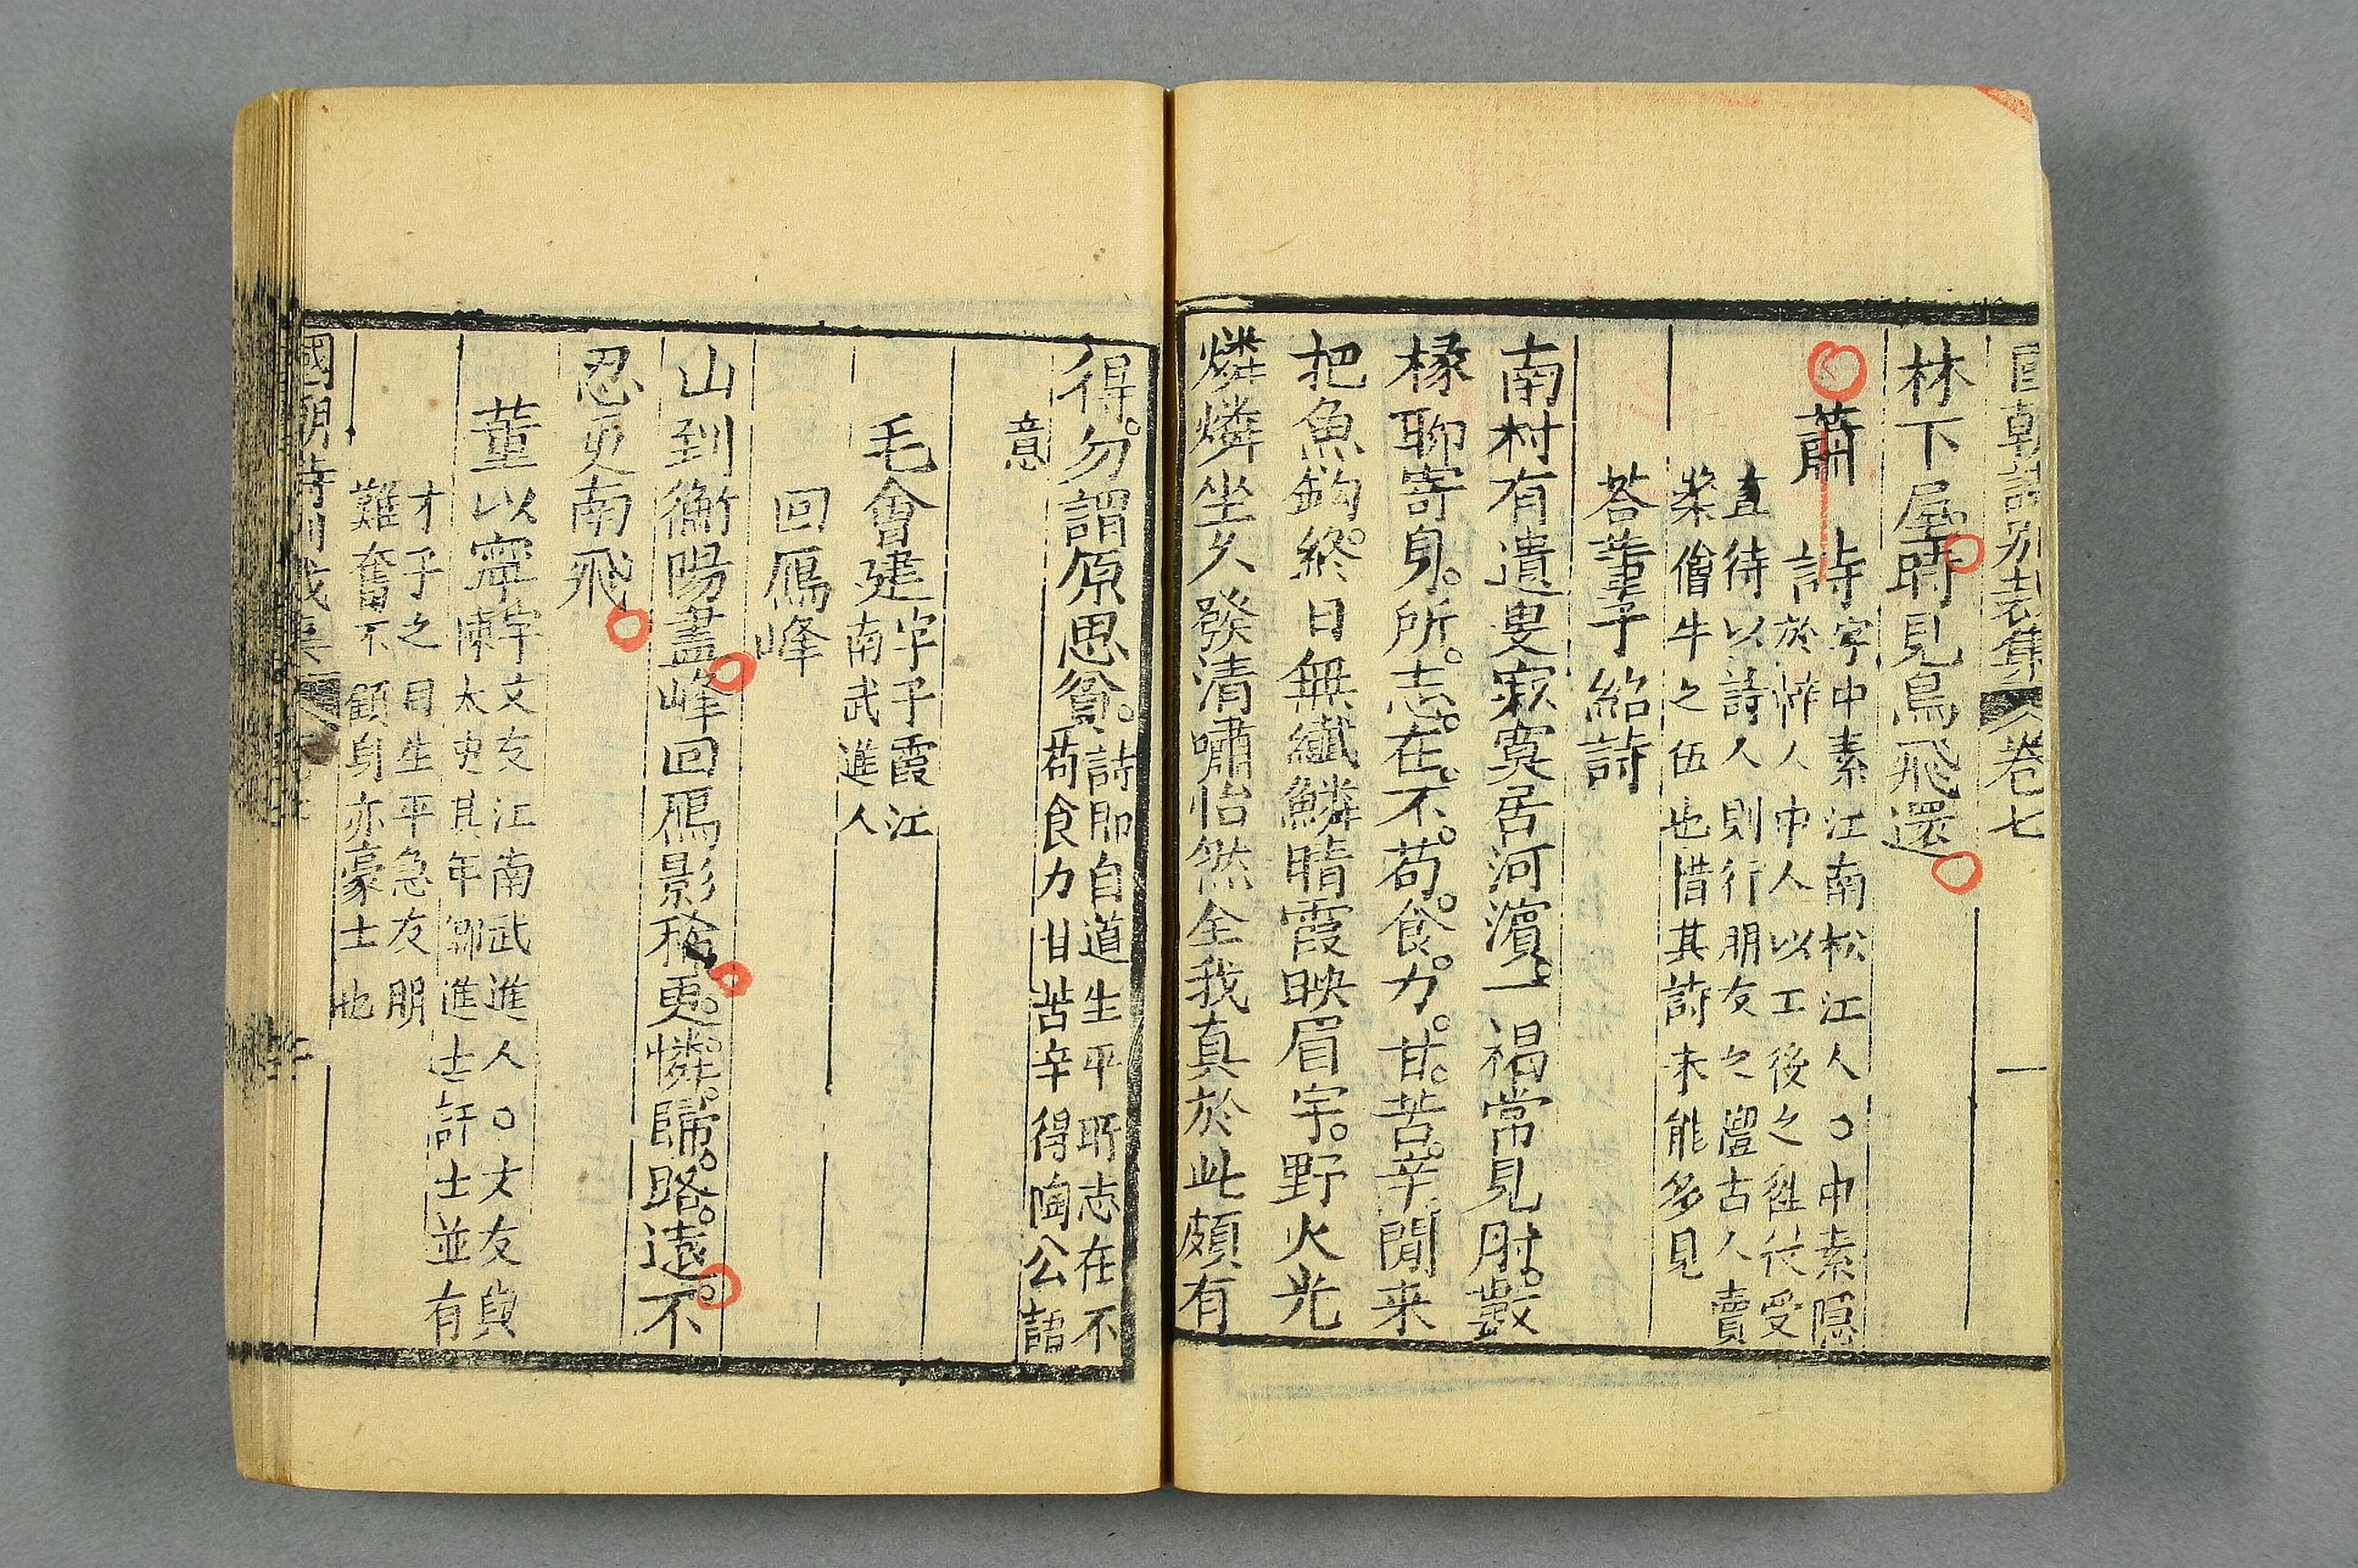 國朝詩別裁集 卷七 一
林下屋。時見鳥飛還。
蕭 詩 字中素江南松江人○中素隱
於梓人中人以工後之往役受
直待以詩人則行朋友之禮古人賣
漿儈牛之伍也惜其詩未能多見
荅董子紹詩
南村有遺叟寂寞居河濱。一褐常見肘。數
椽聊寄身。所。志。在。不。苟。食。力。甘。苦。辛閒来
把魚鈎。終日無纖鱗晴霞映眉宇。野火光
燐燐坐久發清嘯怡然全我真於此頗有
得。勿謂原思貧。詩即自道生平所志在不
苟食力甘苦辛得陶公語
意
毛會建 字子霞江
南武進人
回鴈峰
山到衡陽盡峰回鴈影稀更。憐。歸。路。遠。不
忍更南飛
董以寧 字文友江南武進人○文友與
陳太史其年鄒進士訏士並有
才子之目生平急友朋
難奮不顧身亦豪士也
國朝詩別裁集